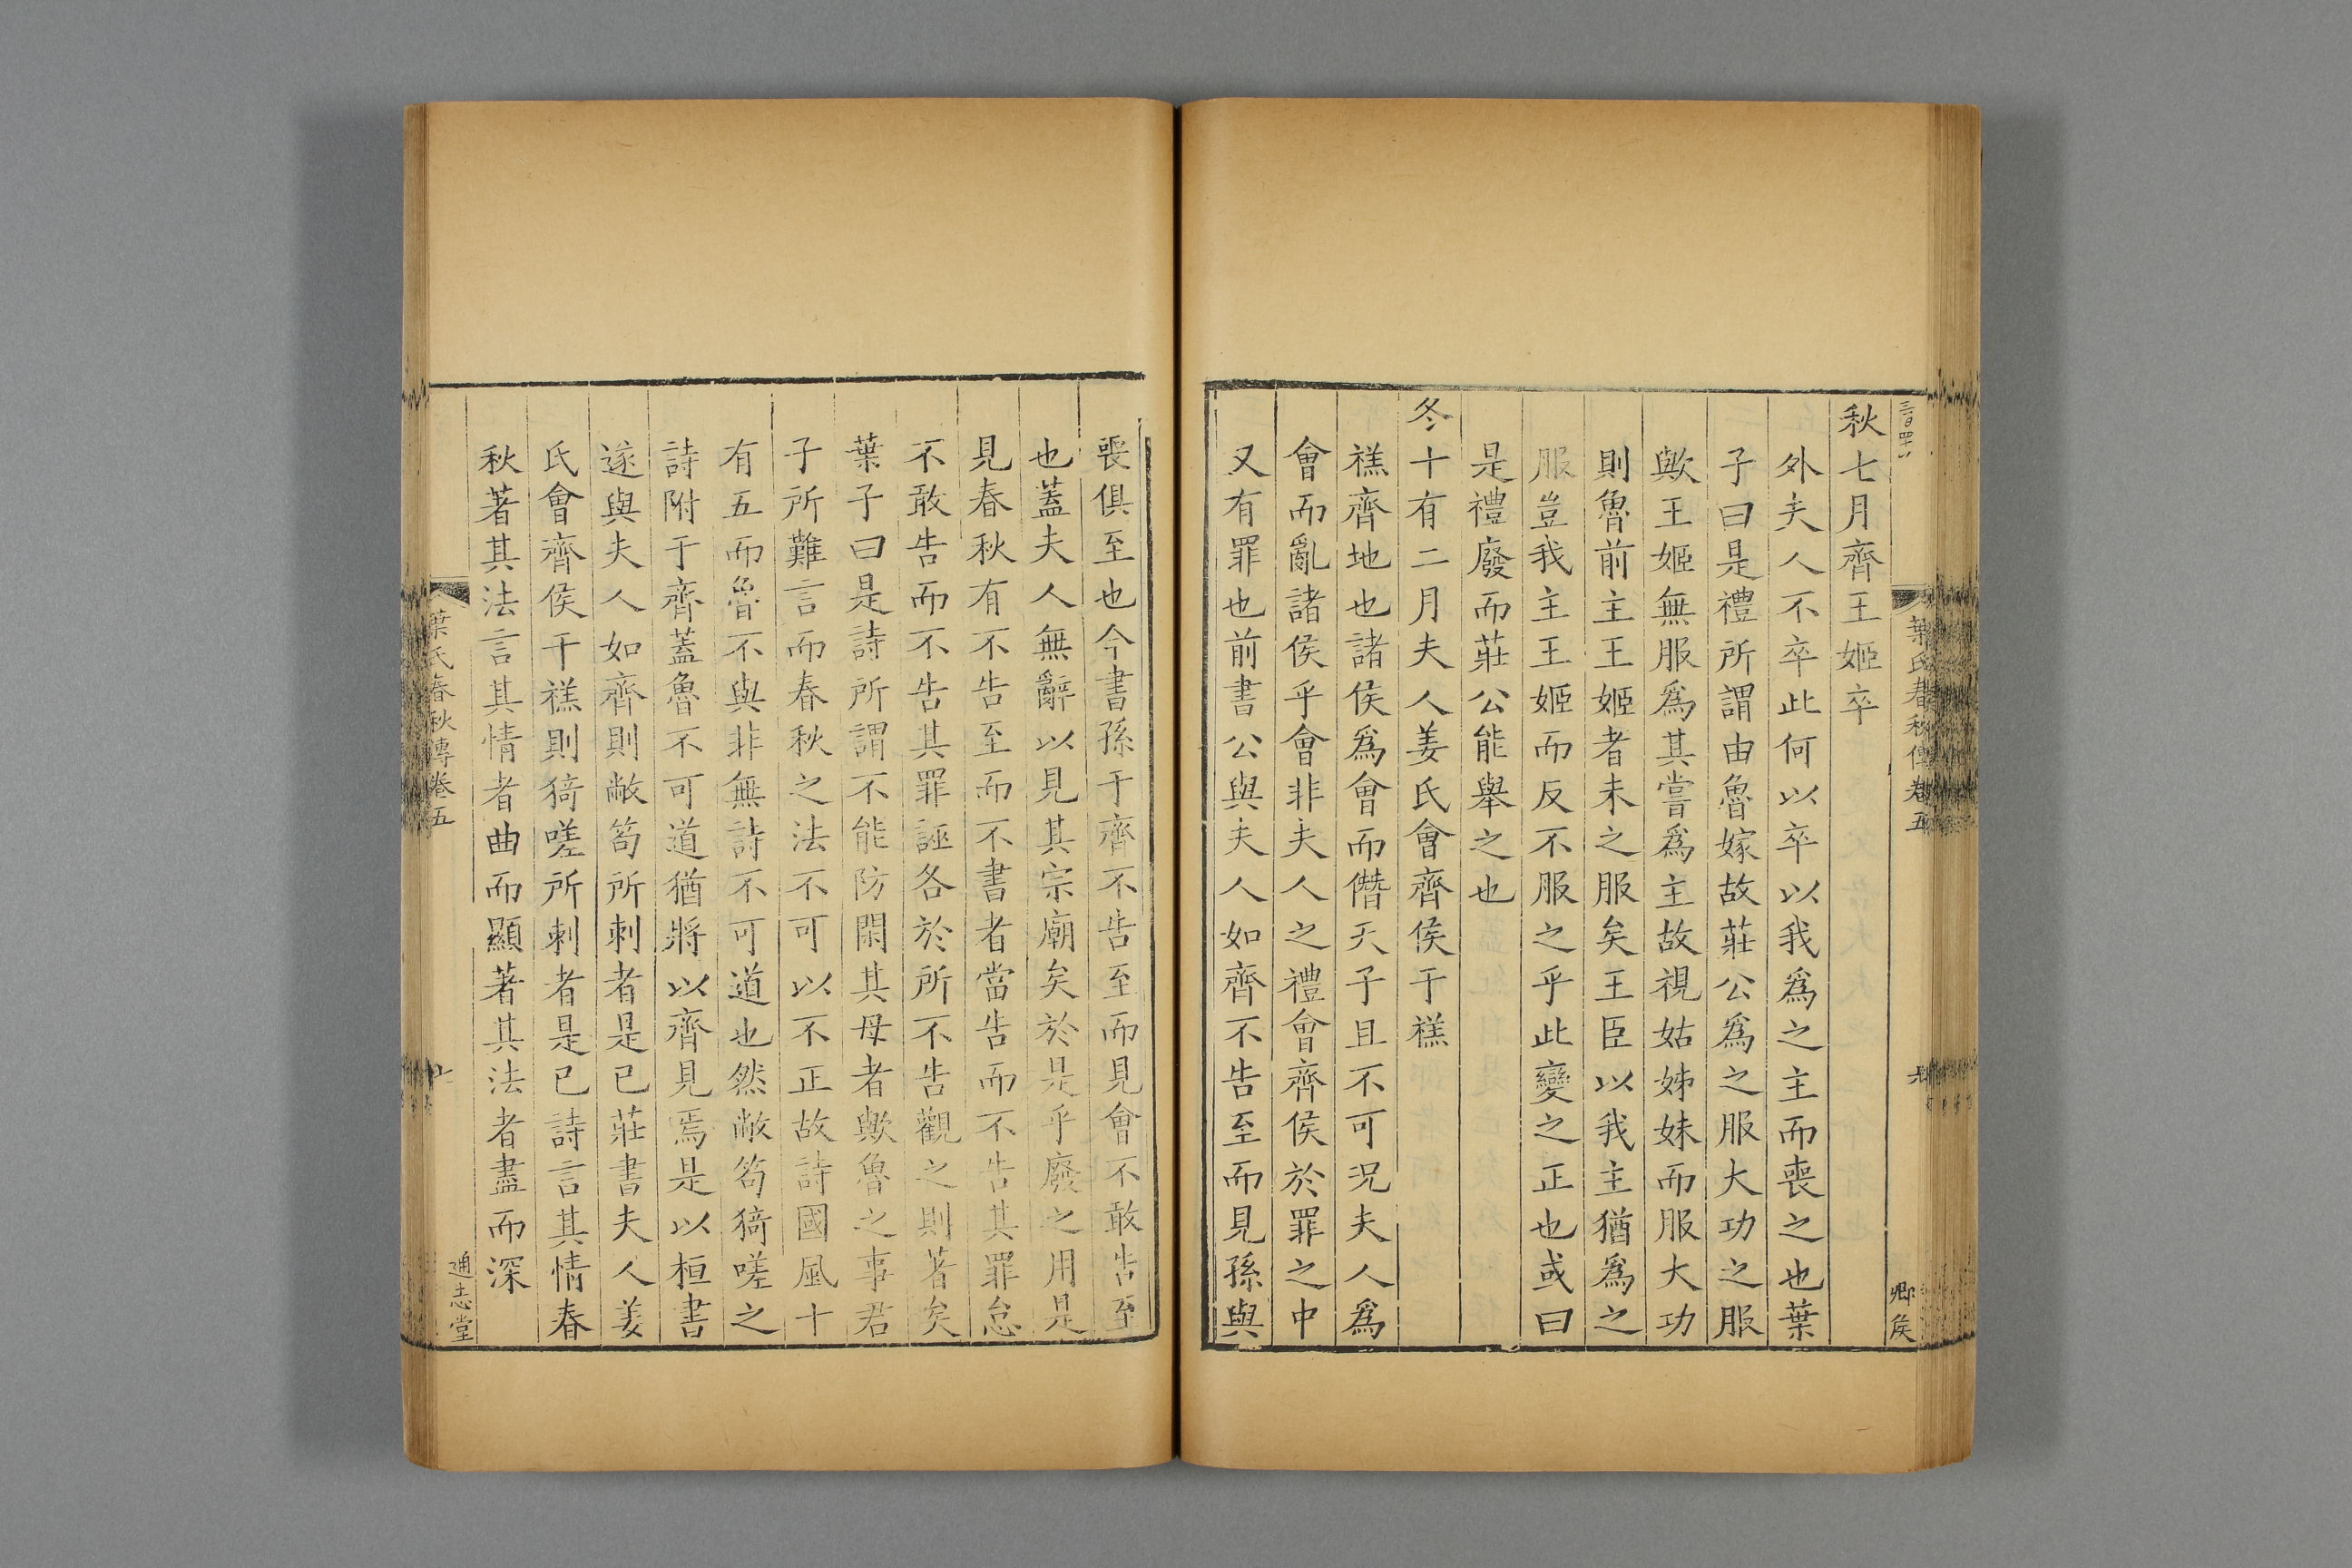 葉氏春秋傳卷五
秋七月齊王姬卒
外夫人不卒此何以卒以我爲之主而喪之也葉
子曰是禮所謂由魯嫁故莊公爲之服大功之服
歟王姬無服爲其嘗爲主故視姑姊妹而服大功
則魯前主王姬者未之服矣王臣以我主猶爲之
服豈我主王姬而反不服之乎此變之正也或曰
是禮廢而莊公能舉之也
冬十有二月夫人姜氏會齊侯于禚
禚齊地也諸侯爲會而僭天子且不可況夫人爲
會而亂諸侯乎會非夫人之禮會齊侯於罪之中
又有罪也前書公與夫人如齊不告至而見孫與
喪俱至也今書孫于齊不告至而見會不敢告至
也蓋夫人無辭以見其宗廟矣於是乎廢之用是
見春秋有不告至而不書者當告而不告其罪怠
不敢告而不告其罪誣各於所不告觀之則著矣
葉子曰是詩所謂不能防閑其母者歟魯之事君
子所難言而春秋之法不可以不正故詩國風十
有五而魯不與非無詩不可道也然敝笱猗嗟之
詩附于齊蓋魯不可道猶將以齊見焉是以桓書
遂與夫人如齊則敝笱所刺者是已莊書夫人姜
氏會齊侯于禚則猗嗟所刺者是已詩言其情春
秋著其法言其情者曲而顯著其法者盡而深
葉氏春秋傳卷五
通志堂